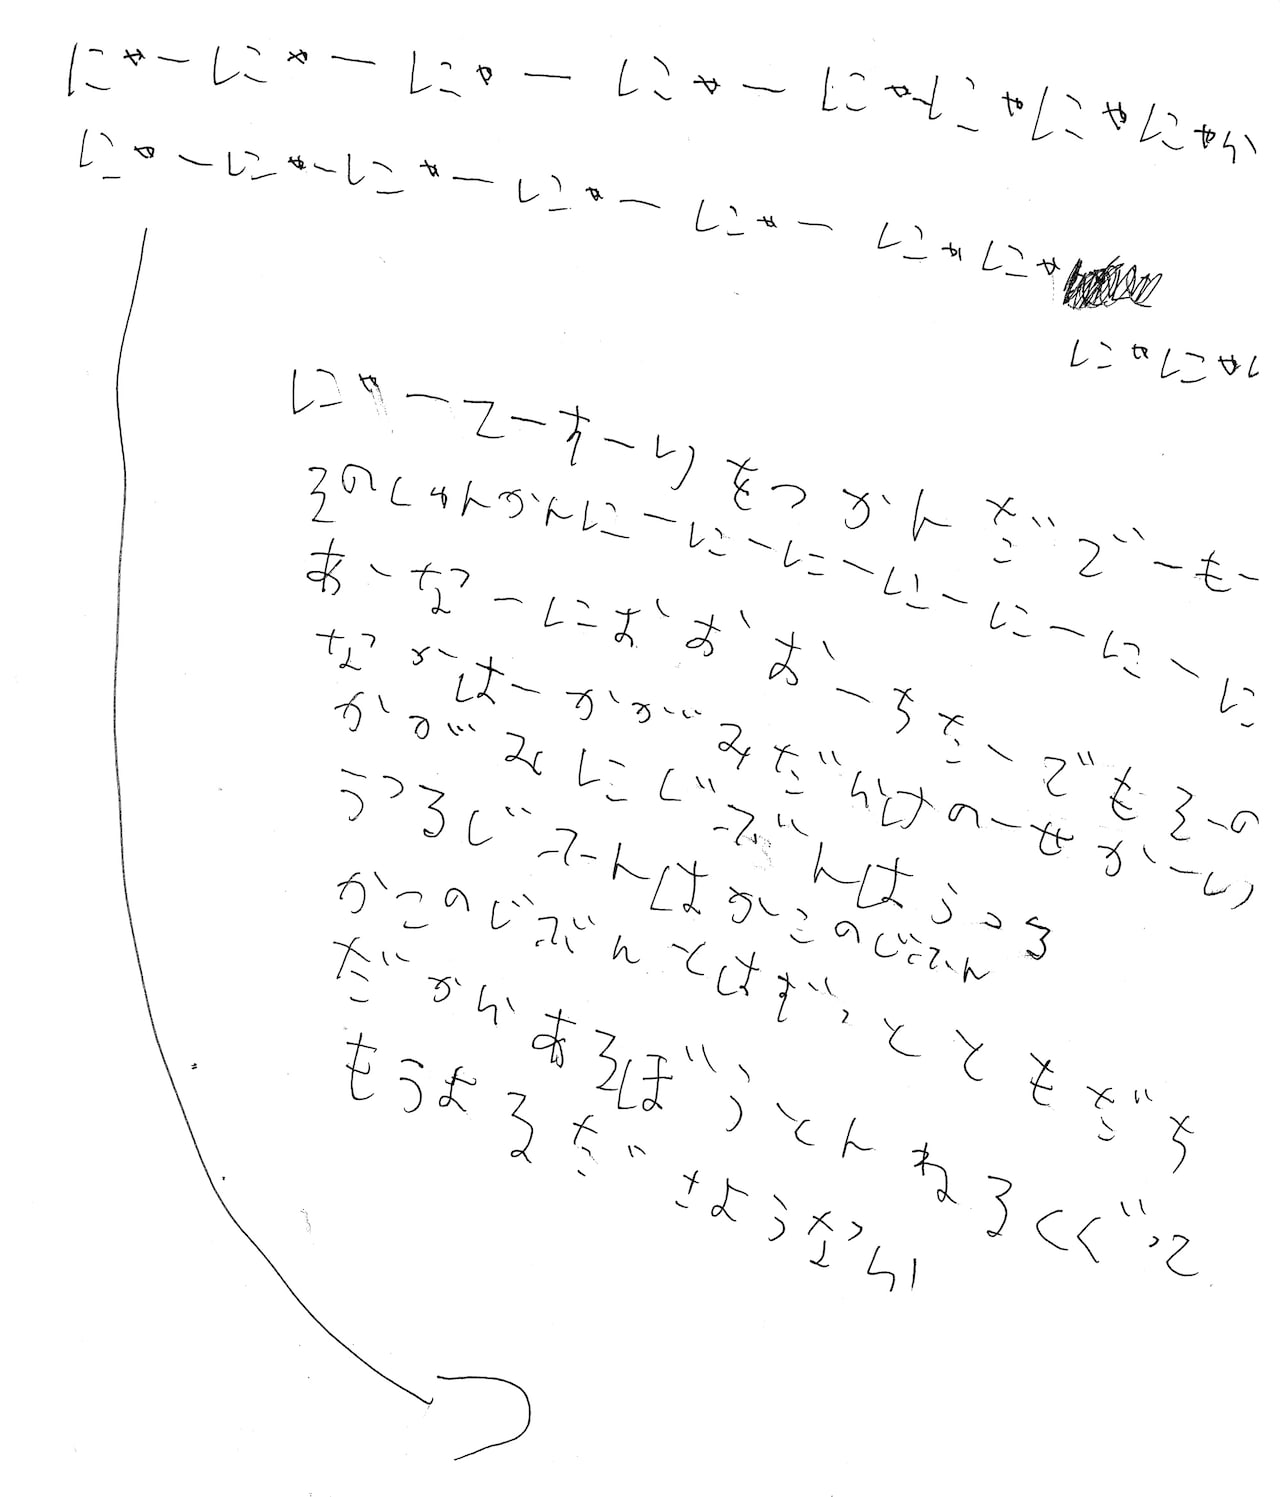 にゃーにゃーにゃーにゃーにゃーにゃにゃにゃか
にゃーにゃーにゃーにゃーにゃーにゃにゃ
にゃにゃい
にゃーてーすーりをつかんだでーもー
そのしゅんかんにーにーにーにーにーにーに
あーなーにおおおーちたーでもそーの
なかはーかがみだらけのーせかーい
かがみにじぶんはうつる
うつるじぶんはかこのじぶん
かこのじぶんとはずっとともだち
だからあるぼうとんねるくぐって
もうよるださようなら